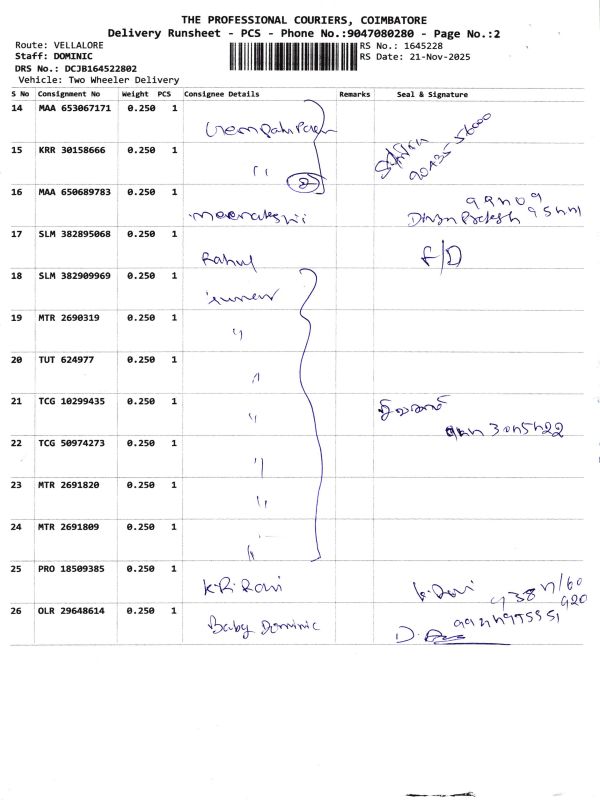 THE PROFESSIONAL COURIERS, COIMBATORE
Delivery Runsheet - PCS - Phone No.:9047080280 - Page No.:2
Route: VELLALORE
RS No.: 1645228
Staff: DOMINIC
RS Date: 21-Nov-2025
DRS No.: DCJB164522802
Vehicle: Two Wheeler Delivery
S No Consignment No Weight PCS Consignee Details Remarks Seal & Signature
14 MAA 653067171 0.250 1
15 KRR 30158666 0.250 1 " 2
16 MAA 650689783 0.250 1 meenakshi
17 SLM 382895068 0.250 1 Rahul F/D
18 SLM 382909969 0.250 1
19 MTR 2690319 0.250 1 "
20 TUT 624977 0.250 1 "
21 TCG 10299435 0.250 1 "
22 TCG 50974273 0.250 1 "
23 MTR 2691820 0.250 1 "
24 MTR 2691809 0.250 1 "
25 PRO 18509385 0.250 1 K.R. Ravi K. Ravi
26 OLR 29648614 0.250 1 Baby Dominic